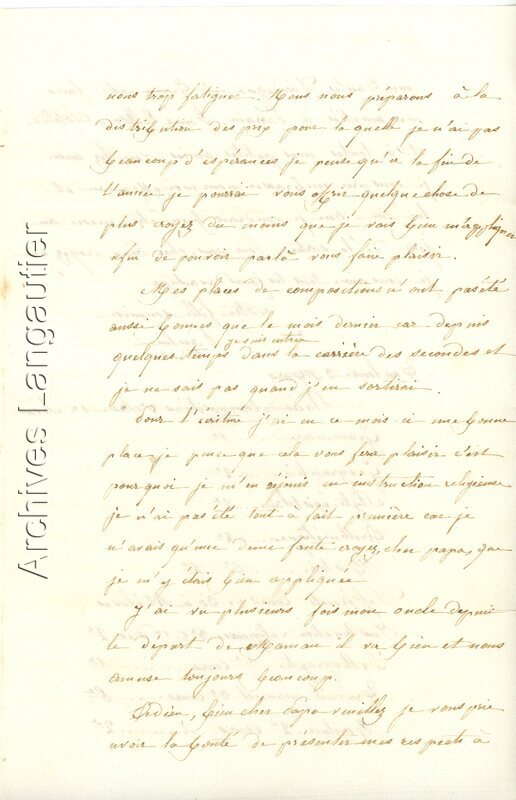 nous trop fatiguer. Nous nous préparons à la
distribution des prix pour la quelle je n'ai pas
beaucoup d'espérances je pense qu'à la fin de
l'année je pourrai vous offrir quelque chose de
plus. croyez du moins que je vais bien m'appliquer
afin de pouvoir par là vous faire plaisir.
Mes places de compositions n'ont pas été
aussi bonnes que le mois dernier car depuis
quelques temps je suis entrée dans la carrière des secondes et
je ne sais pas quand j'en sortirai.
Pour l'écriture j'ai eu ce mois ci une bonne
place je pense que cela vous fera plaisir c'est
pourquoi je m'en réjouis en instruction religieuse
je n'ai pas été tout à fait première car je
n'avais qu'une demi faute croyez, cher papa, que
je m'y étais bien appliquée
J'ai vu plusieurs fois mon oncle depuis
le départ de Maman il va bien et nous
amuse toujours beaucoup.
Adieu, bien cher Papa veuillez je vous prie
avoir la bonté de présenter mes respects à
Archives Langautier